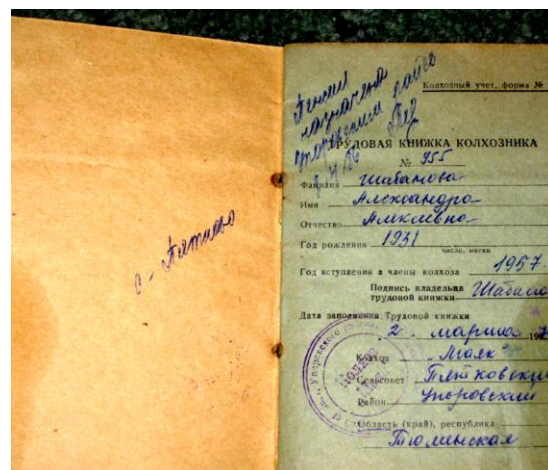 с. Пятково
Пенсия
назначена
Упоровским райсо
Колхозный учет, форма №
ТРУДОВАЯ КНИЖКА КОЛХОЗНИКА
№ 955
Фамилия Шабанова
Имя Александра
Отчество
Год рождения 1931
число, месяц
Год вступления в члены колхоза 1957
Подпись владельца
трудовой книжки
Дата заполнения Трудовой книжки
2. марта
Колхоз "Маяк"
Сельсовет Пятковский
Район Упоровский
Область (край), республика
Тюменская